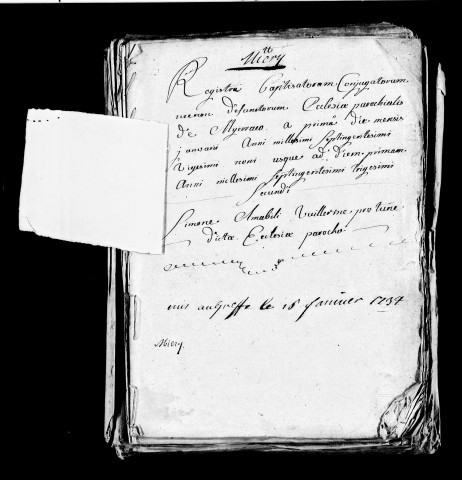 Miery
Registra Baptisatorum Conjugatorum
necnon defunctorum Ecclesiæ parochialis
de Myeriaco a prima die mensis
januarii Anni millesimi Septingentesimi
Vigesimi noni usque ad diem primam
Anni millesimi Septingentesimi trigesimi
Secundi
Simone Amabili Vuillerme pro tunc
dictæ Ecclesiæ parocho
mis au Greffe le 18 janvier 1737
Miery.